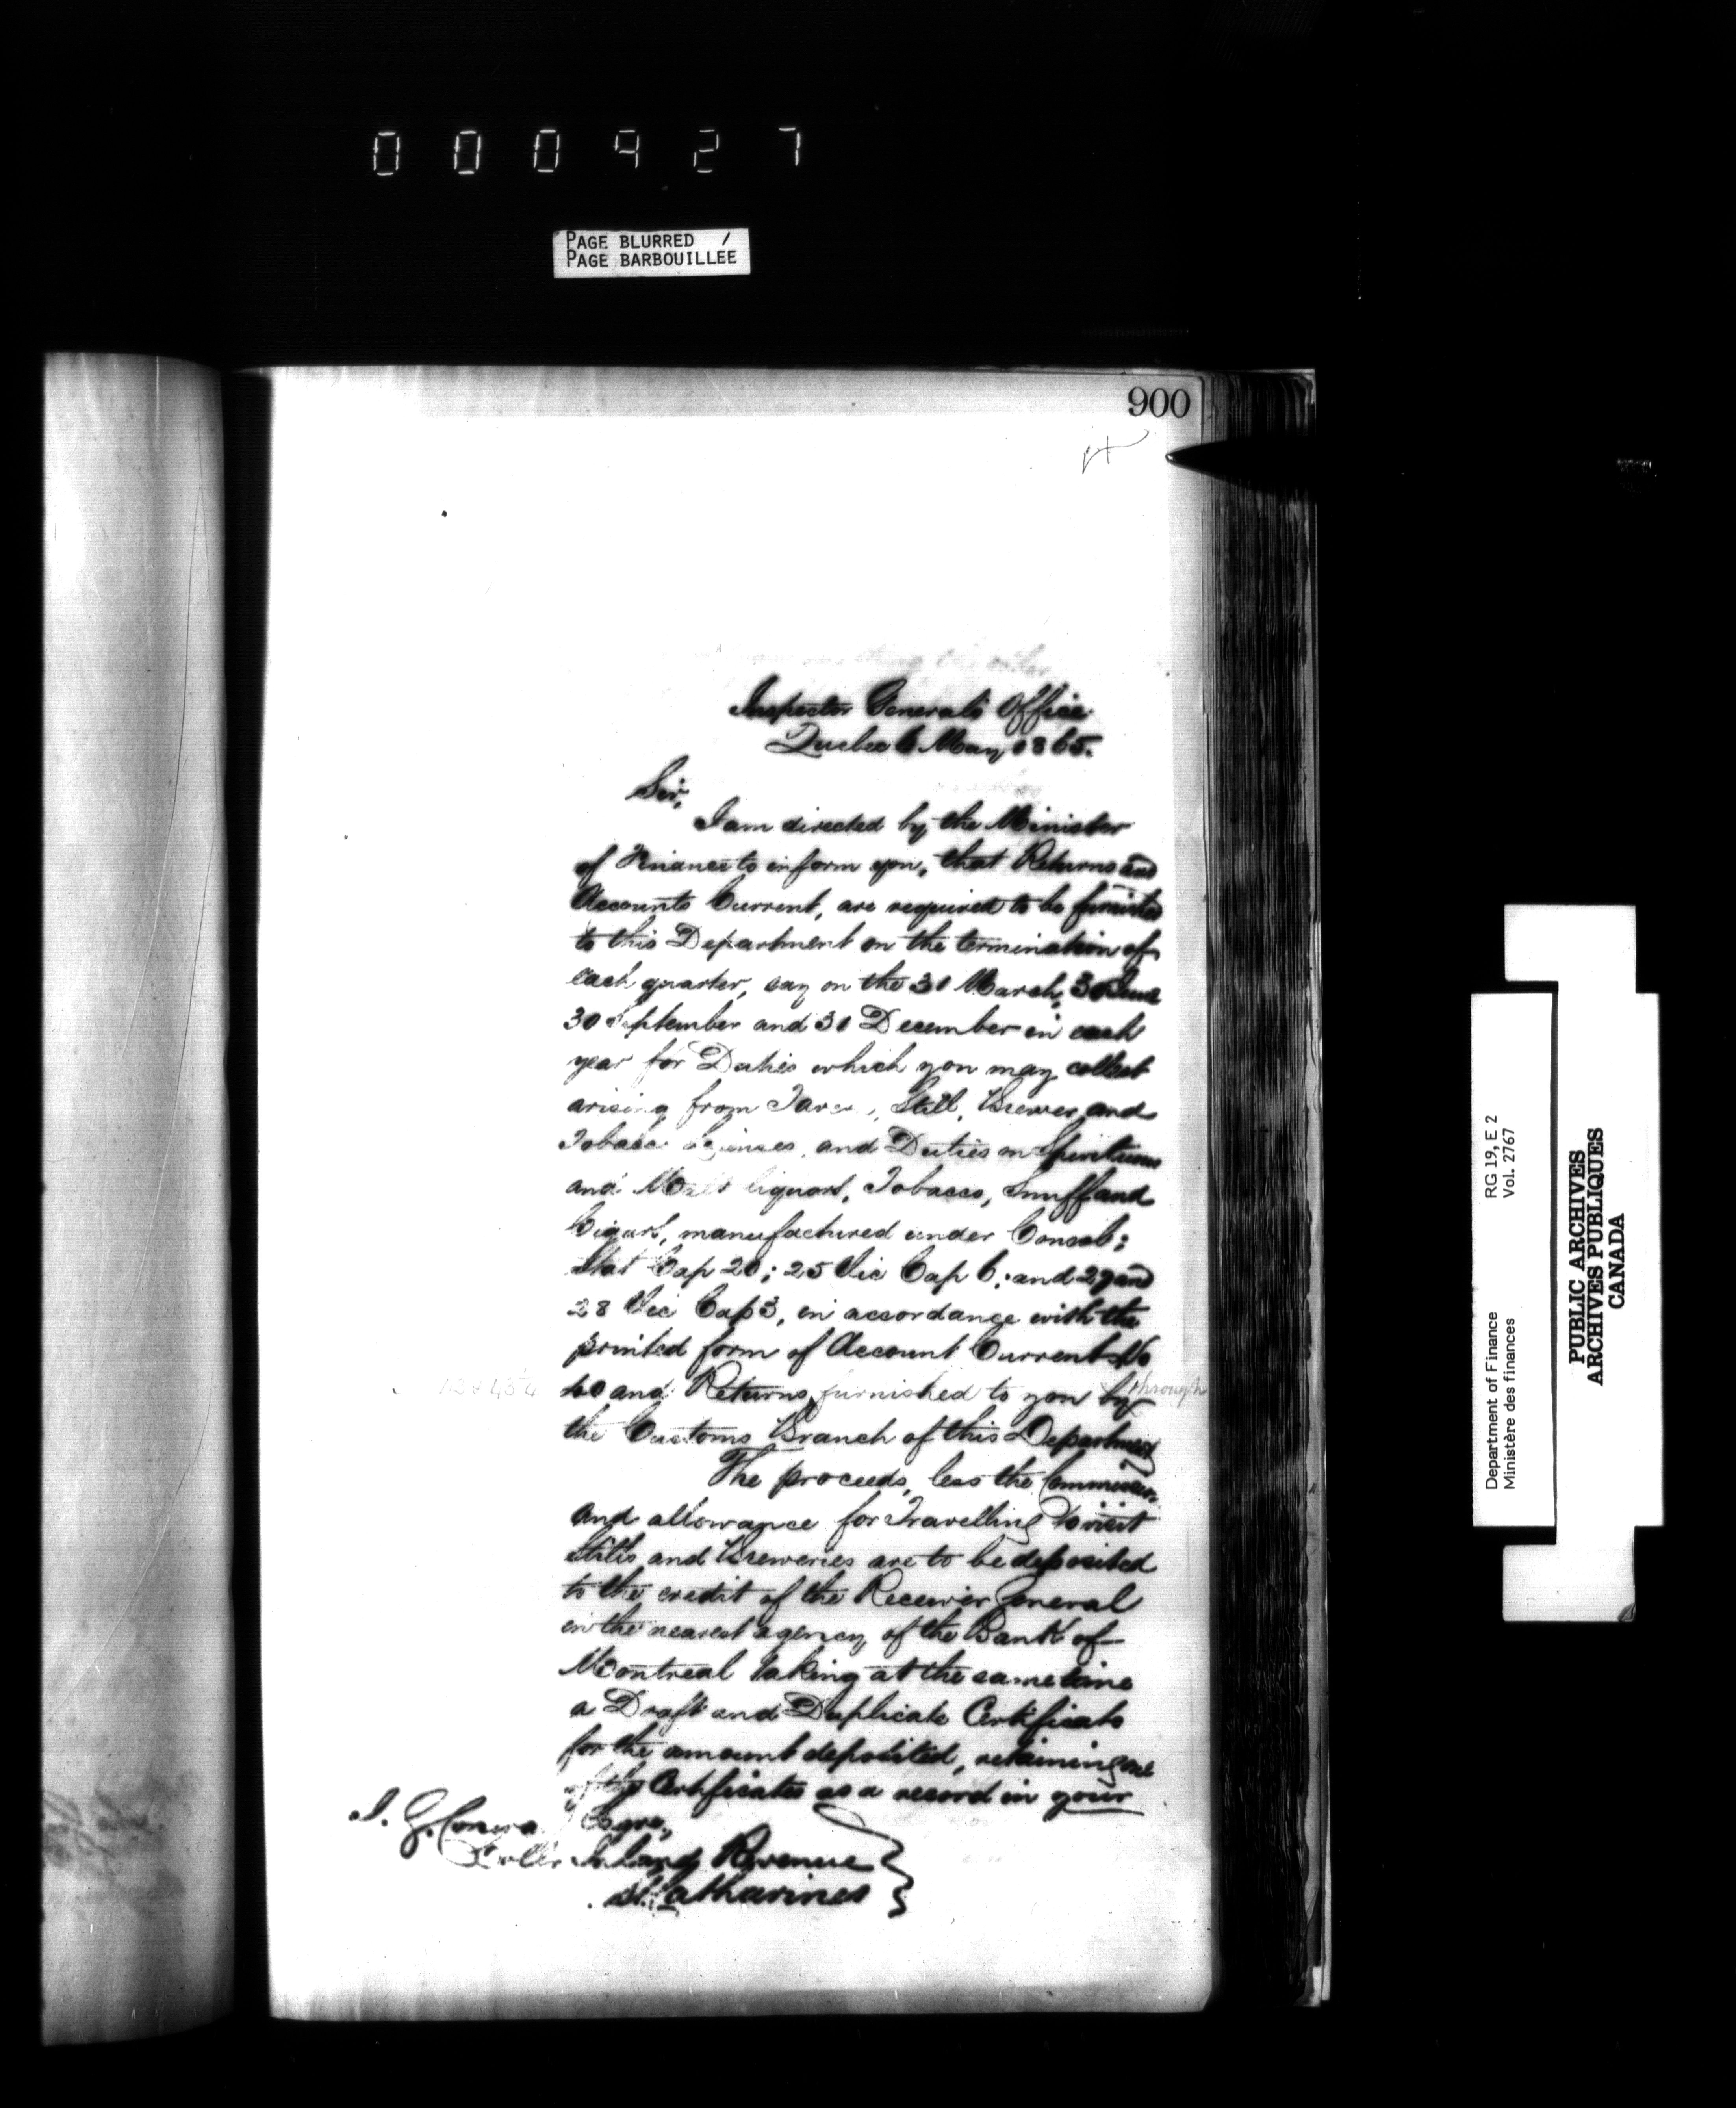 000927
PAGE BLURRED /
PAGE BARBOUILLÉE
900
Inspector General's Office
Quebec 6 May 1865.
Sir,
I am directed by the Minister
of Finance to inform you, that Returns and
Accounts Current, are required to be furnished
to this Department on the termination of
each quarter, say on the 31 March, 30 June
30 September and 31 December in each
year for Duties which you may collect
arising from Tavern, Still, Brewer, and
Tobacco Licenses, and Duties on Spirituous
and Malt liquors, Tobacco, Snuff and
Cigars, manufactured under Consol:
Stat Cap 20; 25 Vic Cap 6; and 27 and
28 Vic Cap 3, in accordance with the
printed form of Account Current No
40 and Returns furnished to you by through
the Customs Branch of this Department
The proceeds, less the Commission
and allowance for Travelling to visit
Stills and Breweries are to be deposited
to the credit of the Receiver General
in the nearest agency of the Bank of
Montreal taking at the same time
a Draft and Duplicate Certificate
for the amount deposited, retaining one
of the Certificates as a record in your
Esqre,
Collr Inland Revenue
St. Catharines
Department of Finance RG 19, E 2
Ministère des finances Vol. 2767
PUBLIC ARCHIVES
ARCHIVES PUBLIQUES
CANADA